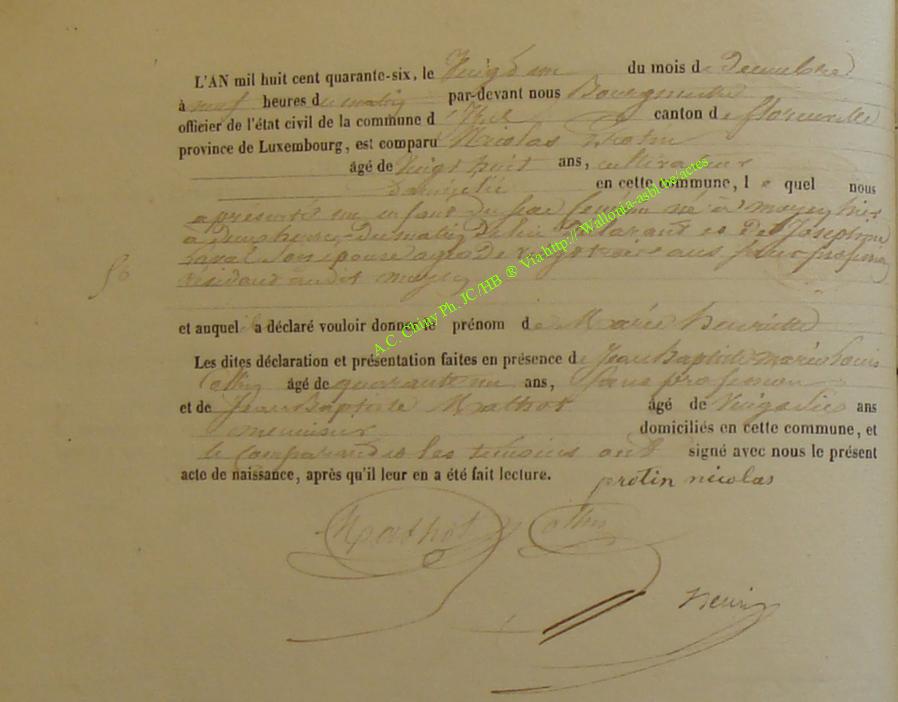 L'AN mil huit cent quarante-six, le Vingt un du mois de Decembre
à neuf heures du matin par-devant nous Bourgmestre
officier de l'état civil de la commune d canton de florenville
province de Luxembourg, est comparu Nicolas Protin
âgé de Vingt huit ans, cultivateur
domicilié en cette commune, le quel nous
a présenté un enfant du sexe feminin né à moyen hier
à deux heures du matin de lui Déclarant et De Josephine
Laval Son épouse agée De Vingt trois ans sans profession
résidant audit moyen
et auquel il a déclaré vouloir donner le prénom de Marie henriette
Les dites déclaration et présentation faites en présence de Jean Baptiste marie Louis
âgé de quarante un ans, Sans profession
et de Jean Baptiste Mathot âgé de Vingt ans
menuisier domiciliés en cette commune, et
le Comparant et les temoins ont signé avec nous le présent
acte de naissance, après qu'il leur en a été fait lecture.
protin nicolas
Mathot
A.C. Chiny Ph. JC/HB ® Via http:// Wallonia-asbl.be/actes